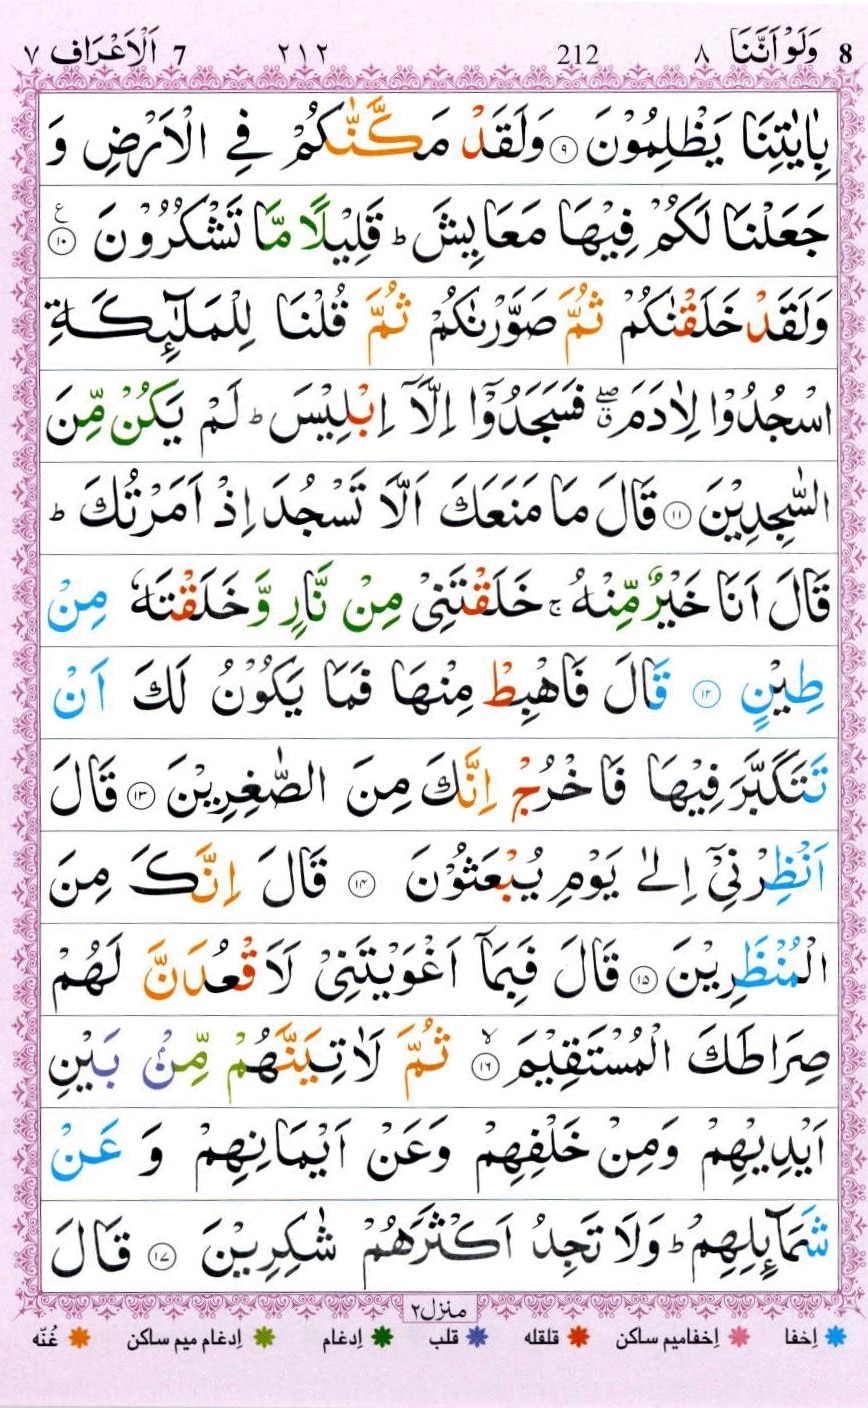 8 وَلَوْ اَنَّنَا ٨ 212 ٢١٢ 7 اَلْاَعْرَاف ٧
بِاٰيٰتِنَا يَظْلِمُوْنَ ۹ وَلَقَدْ مَكَّنّٰكُمْ فِي الْاَرْضِ وَ
جَعَلْنَا لَكُمْ فِيْهَا مَعَايِشَ ؕ قَلِيْلًا مَّا تَشْكُرُوْنَ ۱۰ ع
وَلَقَدْ خَلَقْنٰكُمْ ثُمَّ صَوَّرْنٰكُمْ ثُمَّ قُلْنَا لِلْمَلٰٓئِكَةِ
اسْجُدُوْا لِاٰدَمَ ۖۗ فَسَجَدُوْۤا اِلَّاۤ اِبْلِيْسَ ؕ لَمْ يَكُنْ مِّنَ
السّٰجِدِيْنَ ۱۱ قَالَ مَا مَنَعَكَ اَلَّا تَسْجُدَ اِذْ اَمَرْتُكَ ؕ
قَالَ اَنَا خَيْرٌ مِّنْهُ ۚ خَلَقْتَنِيْ مِنْ نَّارٍ وَّ خَلَقْتَهٗ مِنْ
طِيْنٍ ۱۲ قَالَ فَاهْبِطْ مِنْهَا فَمَا يَكُوْنُ لَكَ اَنْ
تَتَكَبَّرَ فِيْهَا فَاخْرُجْ اِنَّكَ مِنَ الصّٰغِرِيْنَ ۱۳ قَالَ
اَنْظِرْنِيْۤ اِلٰى يَوْمِ يُبْعَثُوْنَ ۱۴ قَالَ اِنَّكَ مِنَ
الْمُنْظَرِيْنَ ۱۵ قَالَ فَبِمَاۤ اَغْوَيْتَنِيْ لَاَقْعُدَنَّ لَهُمْ
صِرَاطَكَ الْمُسْتَقِيْمَ ۙ ۱۶ ثُمَّ لَاٰتِيَنَّهُمْ مِّنْۢ بَيْنِ
اَيْدِيْهِمْ وَمِنْ خَلْفِهِمْ وَعَنْ اَيْمَانِهِمْ وَ عَنْ
شَمَآئِلِهِمْ ؕ وَلَا تَجِدُ اَكْثَرَهُمْ شٰكِرِيْنَ ۱۷ قَالَ
منزل۲
اِخفا اِخفامیم ساکن قلقله قلب اِدغام اِدغام میم ساکن غُنّه